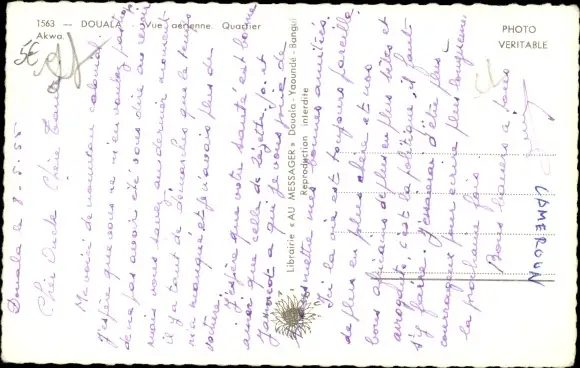 1563 — DOUALA — Vue aérienne Quartier
Akwa.
PHOTO
VERITABLE
Librairie « AU MESSAGER » Douala - Yaoundé - Bangui
Reproduction interdite
CAMEROUN
5€
Douala le 8.5.55
Cher Oncle Chère Tante
Me voici de nouveau
j'espère que vous ne m'en voulez pas
de ne pas avoir été vous dire au revoir
mais vous savez au dernier moment
il y a tant de démarches que le temps
m'a manqué et je n'avais plus de
voiture.
J'espère que votre santé est bonne
ainsi que celle de et
à qui je vous prie de
transmettre mes bonnes amitiés.
Ici la vie est toujours pareille
de plus en plus chère et nos
bons africains de plus en plus bêtes et
arrogants, c'est la politique, il faut
s'y faire. J'essaierai d'être plus
courageux pour écrire plus longuement
la prochaine fois
Bons baisers à tous